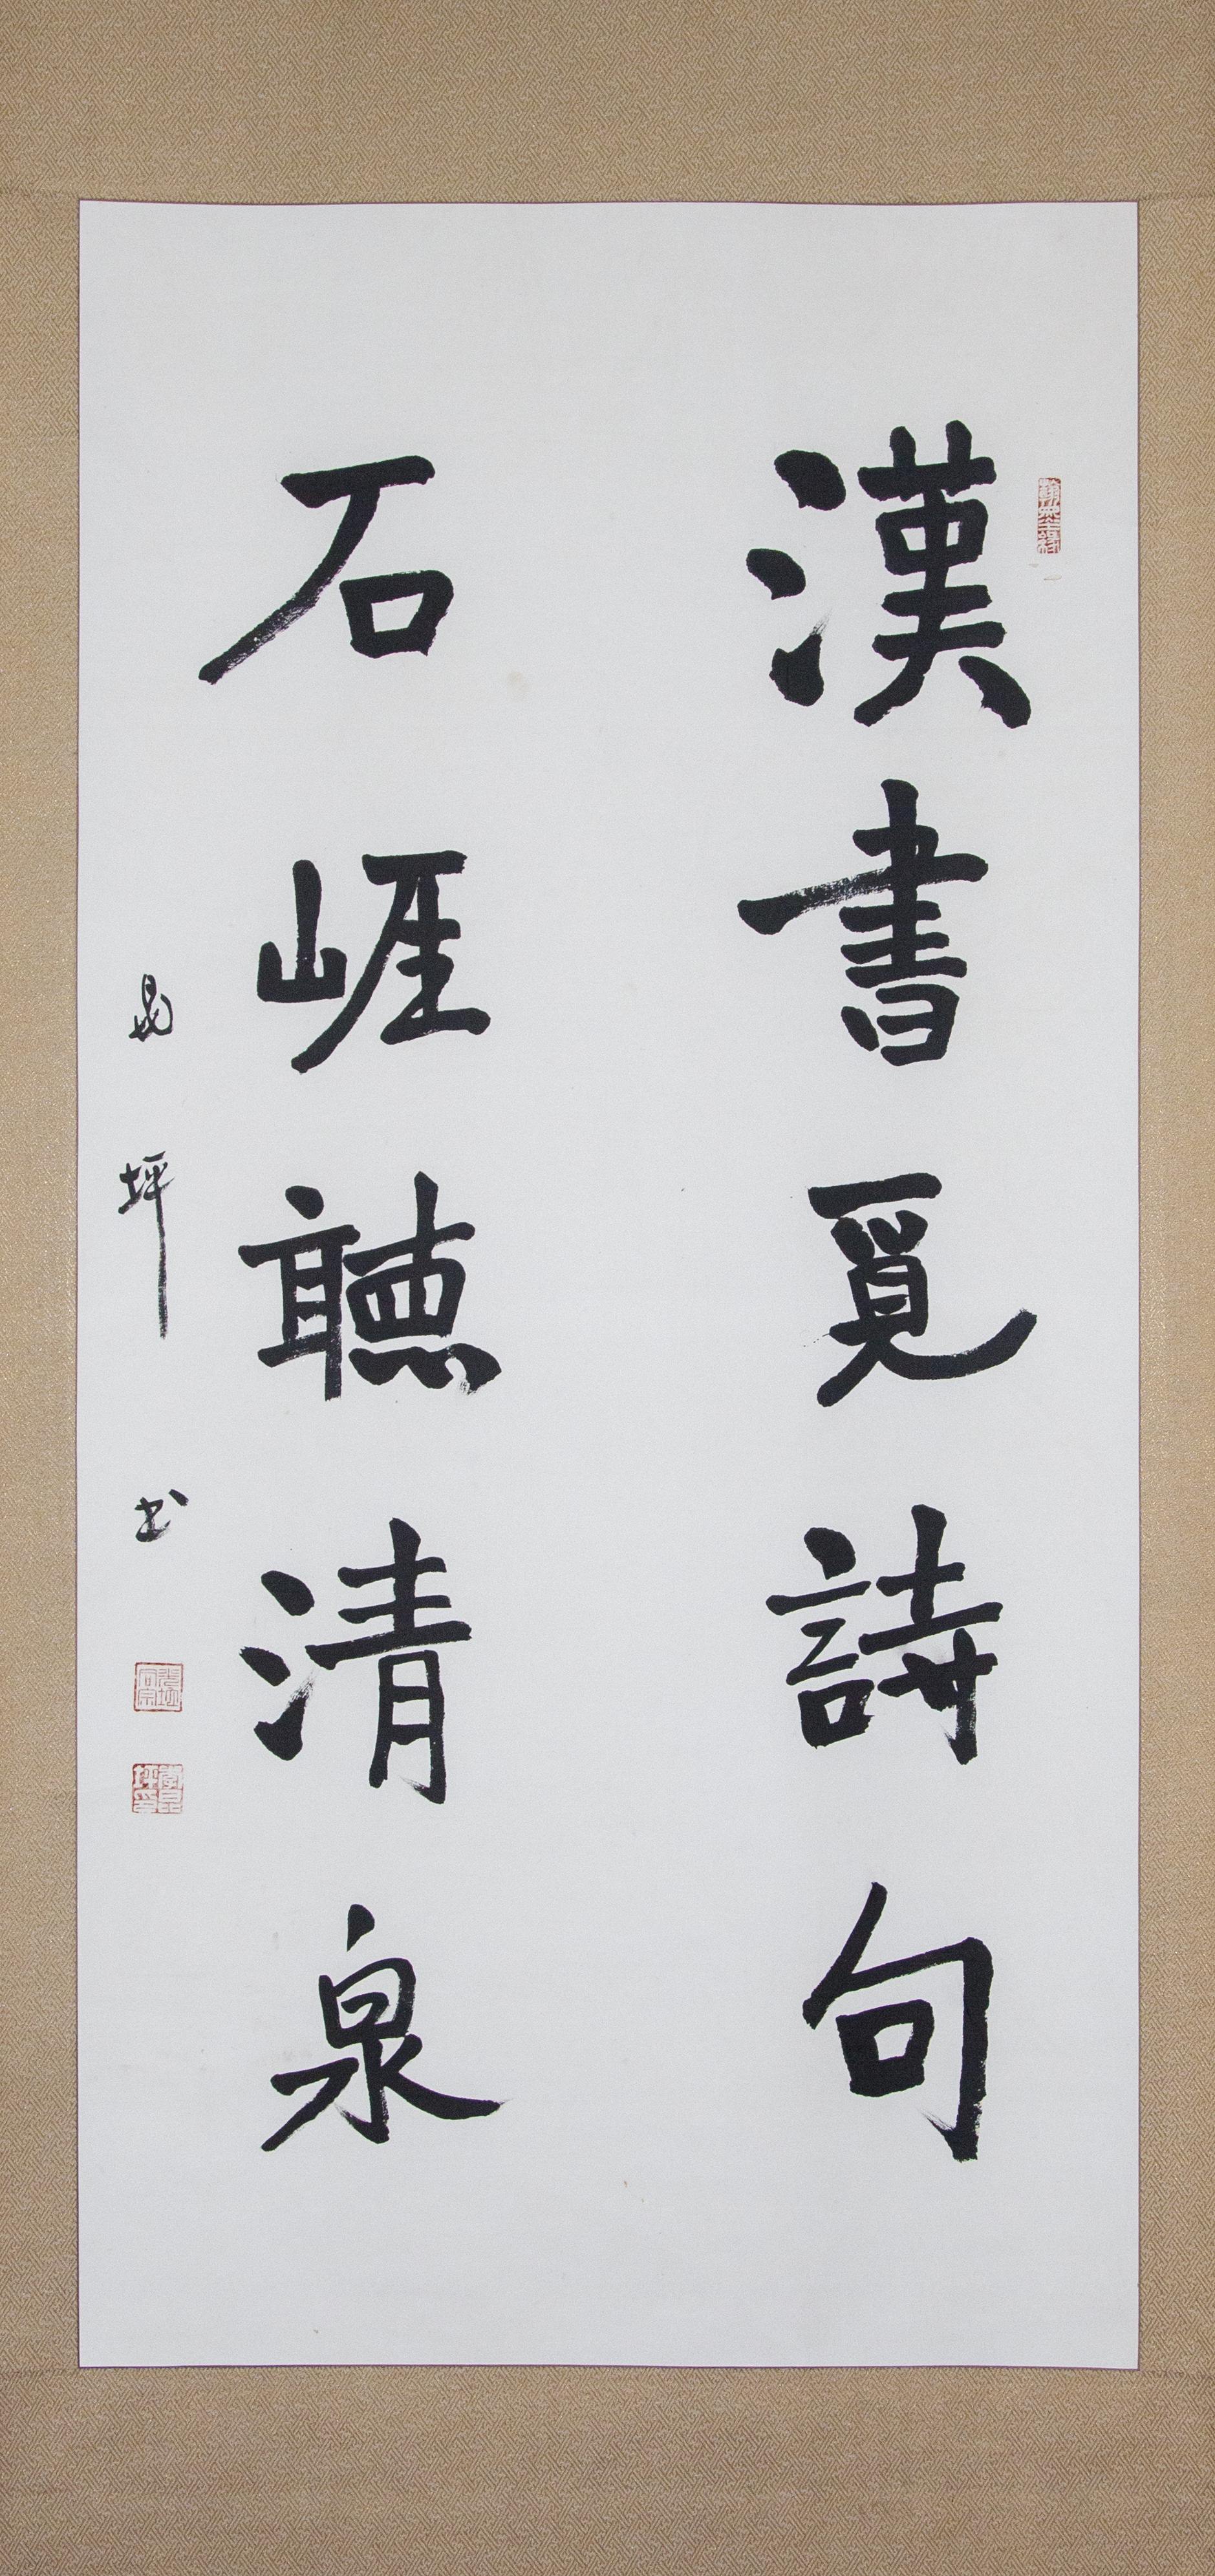 漢書覓詩句
石崕聽清泉
昆坪书